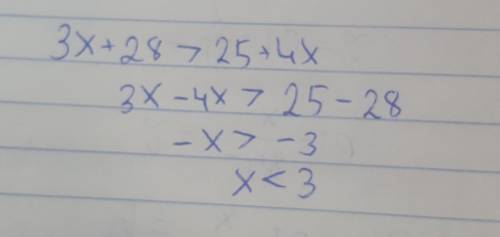 3x+28 > 25+4x
3x-4x > 25-28
-x > -3
x < 3